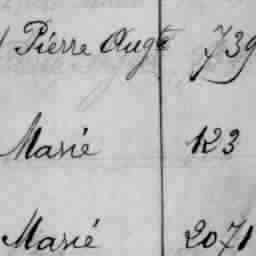 Pierre Augte 739
Marié 123
Marié 2071